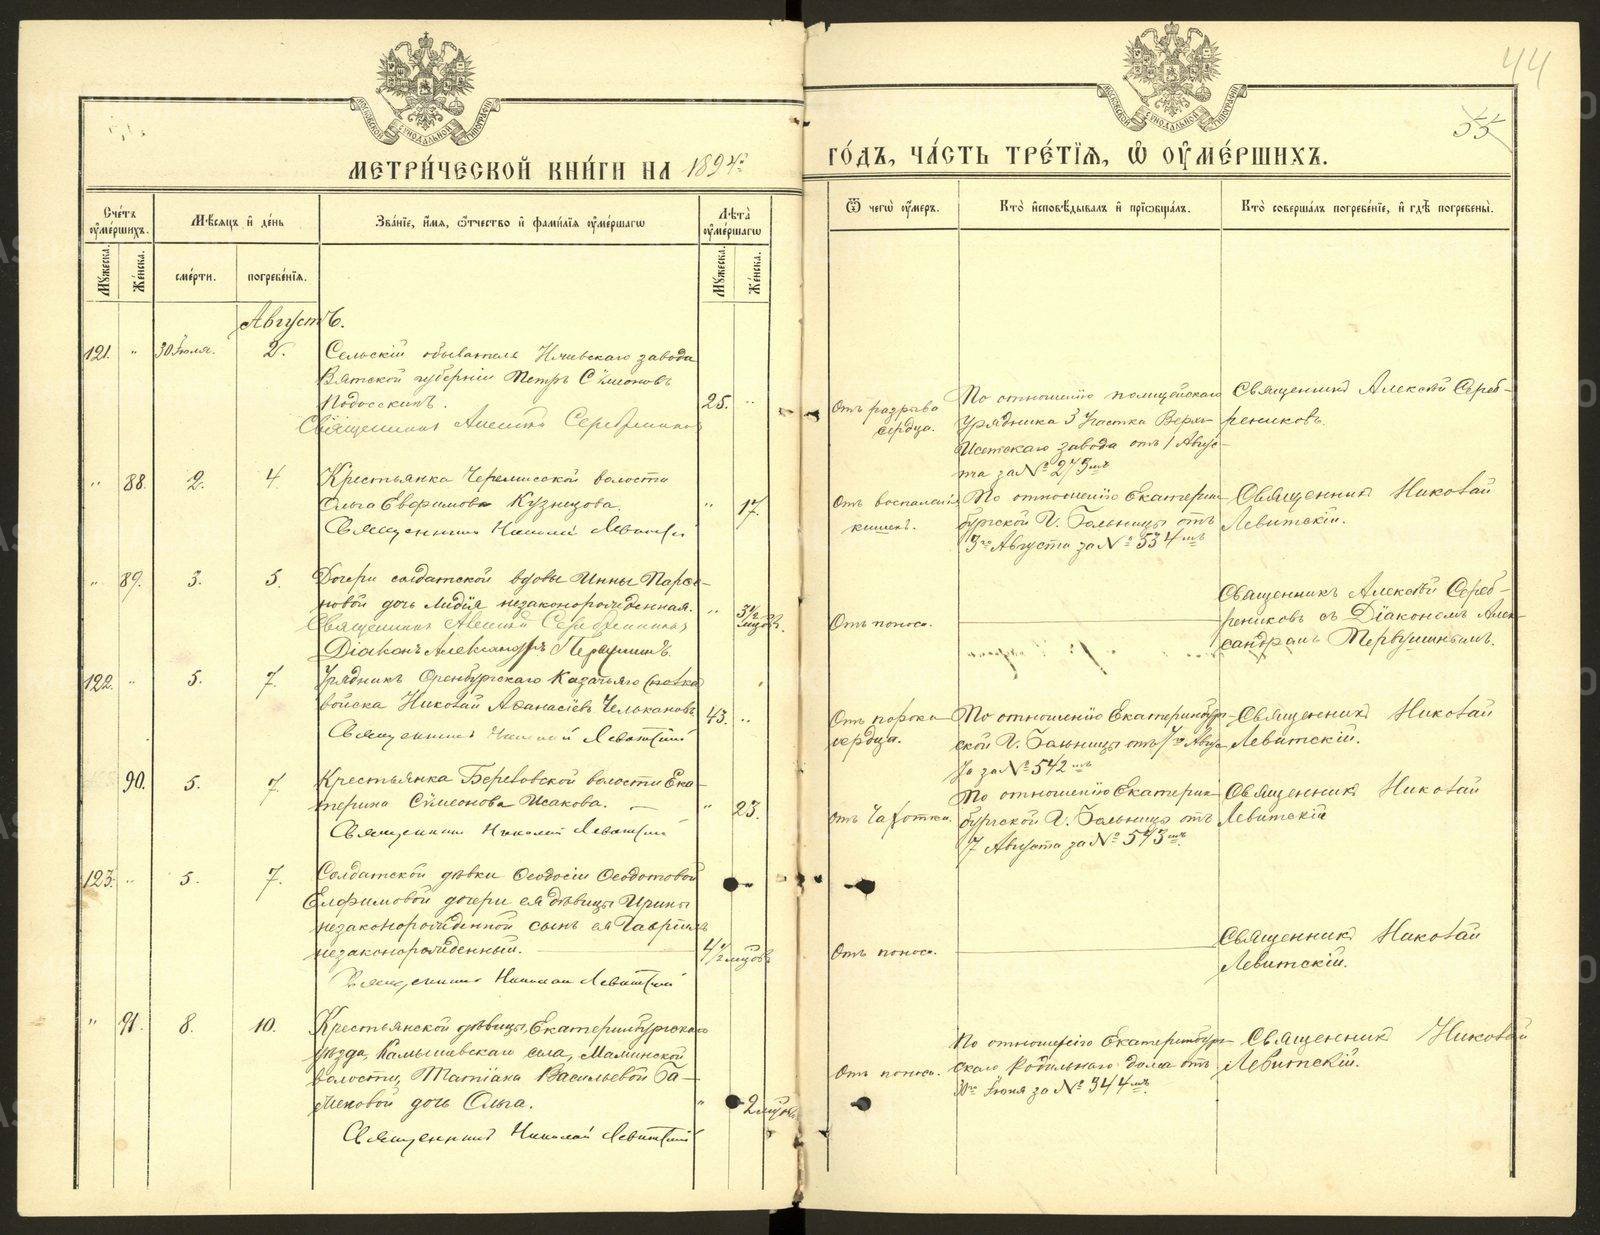 44
55
МЕТРИ́ЧЕСКОЙ КНИ́ГИ НА 1894й
ГО́ДЪ, ЧА́СТЬ ТРЕ́ТІѦ, Ѽ ОУ҆МЕ́РШИХЪ.
Сче́тъ оу҆ме́ршихъ.
Мꙋ́жеска.
Же́нска.
Мѣ́сѧцъ и҆ де́нь
сме́рти.
погребе́нїѧ.
Зва́нїе, и҆́мѧ, ѻ҆́тчество и҆ фами́лїѧ оу҆ме́ршагѡ
Лѣ́та оу҆ме́ршагѡ
Мꙋ́жеска.
Же́нска.
Ѿ чегѡ̀ оу҆́мер.
Кто̀ и҆сповѣ́дывалъ и҆ прїѡбща́лъ.
Кто̀ соверша́лъ погребе́нїе, и҆ гдѣ̀ погребены̀.
Августъ.
121. " 30 Іюля. 2.
Сельскій обыватель завода
Вятской губерніи Петръ Сѵмеоновъ
25. "
Священникъ Алексій Серебренниковъ
Отъ разрыва
сердца.
По отношенію полицейскаго
Урядника 3 Участка Верхъ-
Исетскаго завода отъ 1 Авгус-
та за № 275мъ
Священникъ Алексій Сереб-
рениковъ.
" 88. 2. 4.
Крестьянка Черемисской волости
Ольга Евфимова Кузнецова.
" 17.
Священникъ Николай Левитскій
Отъ воспаленія
кишекъ.
По отношенію Екатерин-
бургской Г. Больницы отъ
3го Августа за № 534мъ
Священникъ Николай
Левитскій.
" 89. 3. 5.
Дочери солдатской вдовы Инны Парѳе-
новой дочь Лидія незаконорожденная.
Священникъ Алексій Серебренниковъ
Діаконъ Александръ Первушинъ.
Отъ поноса.
Священникъ Алексій Сереб-
рениковъ съ Діакономъ Алек-
сандромъ Первушинымъ.
122. " 5. 7.
Урядникъ Оренбургскаго Казачьяго
войска Николай Аѳанасіевъ Чельхановъ
43. "
Священникъ Николай Левитскій
Отъ порока
сердца.
По отношенію Екатеринбург-
ской Г. Больницы отъ 7го Авгус-
та за № 542мъ
Священникъ Николай
Левитскій.
90. 5. 7.
Крестьянка Березовской волости Ека-
терина Сѵмеонова Исакова.
" 23.
Священникъ Николай Левитскій
Отъ чахотки.
По отношенію Екатерин-
бургской Г. Больницы отъ
7 Августа за № 543мъ.
Священникъ Николай
Левитскій
123. " 5. 7.
Солдатской дѣвки Ѳеодосіи Ѳеодотовой
Елфимовой дочери ея дѣвицы Ирины
незаконорожденной сынъ ея Гавріилъ
незаконорожденный.
4 1/2 мцовъ
Священникъ Николай Левитскій
Отъ поноса.
Священникъ Николай
Левитскій.
" 91. 8. 10.
Крестьянской дѣвицы, Екатеринбургскаго
уѣзда, Камышевскаго села, Маминской
волости, Татіана Васильевой Ба-
женовой дочь Ольга.
" 2 мцовъ
Священникъ Николай Левитскій
Отъ поноса.
По отношенію Екатеринбург-
скаго Родильнаго дома отъ
Іюня за № 344мъ.
Священникъ Николай
Левитскій.